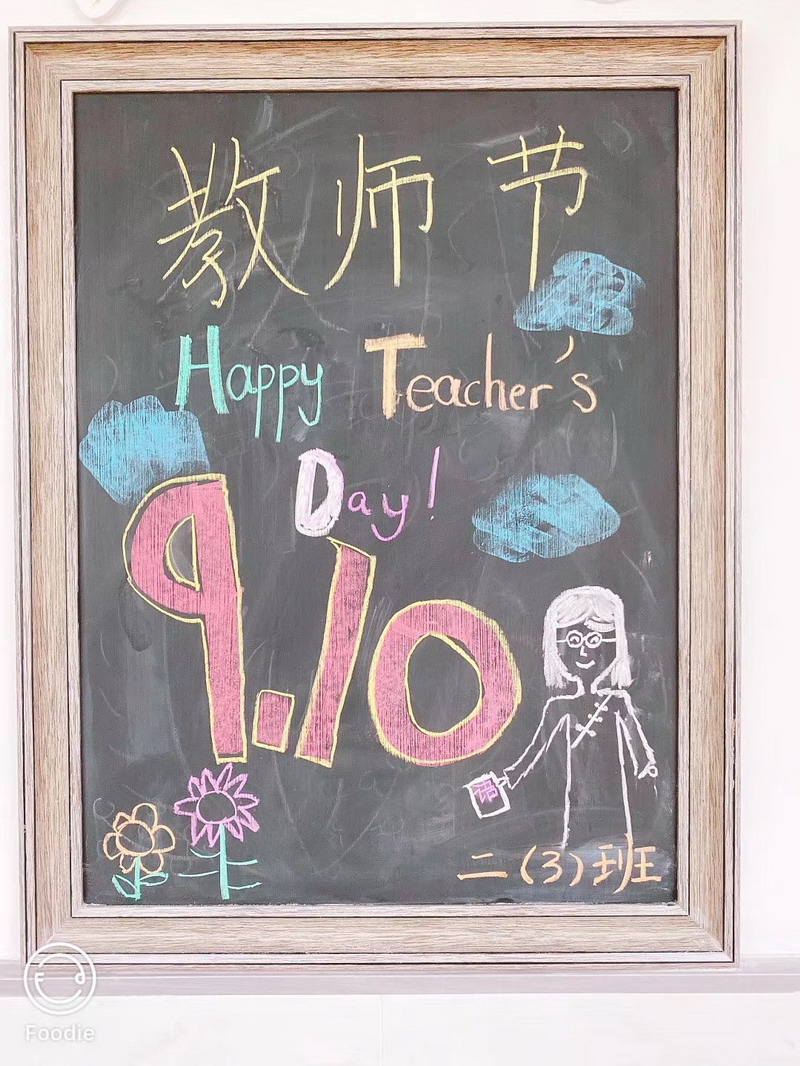 教师节
Happy Teacher's
Day!
9.10
语
二(3)班
Foodie